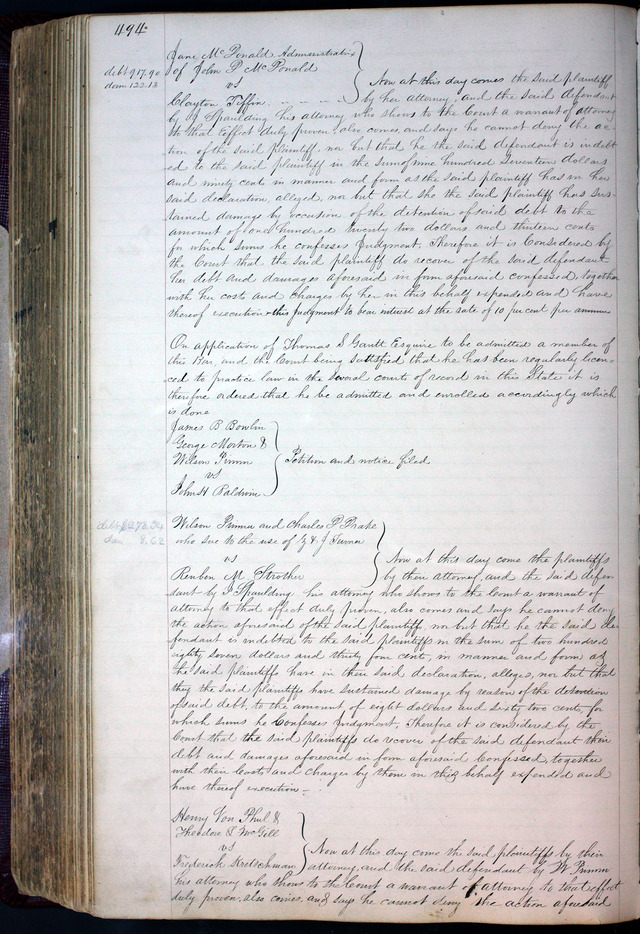 494
Jane McDonald Administratrix
of John P McDonald
debt 917.90
dam 122.13
vs
Now at this day comes the said plaintiff
Clayton Tiffin
by her attorney, and the said defendant
by J Spaulding his attorney who shows to the Court a warrant of attorney
to that effect duly proven, also comes, and says he cannot deny the ac-
tion of the said plaintiff, nor but that he the said defendant is indebt
ed to the said plaintiff in the sum of nine hundred seventeen dollars
and ninety cents in manner and form as the said plaintiff has in her
said declaration alleged, nor but that she the said plaintiff has sus-
tained damage by occasion of the detention of said debt to the
amount of one hundred twenty two dollars and thirteen cents
for which sums he confesses Judgment, Therefore it is Considered by
the Court that the said plaintiff do recover of the said defendant
her debt and damages aforesaid in form aforesaid confessed, together
with her costs and charges by her in this behalf expended and have
thereof execution & this judgment to bear interest at the rate of 10 per cent per annum
On application of Thomas S Gantt Esquire to be admitted a member of
this Bar, and the Court being satisfied that he has been regularly licen-
ced to practice law in the several courts of record in this State it is
therefore ordered that he be admitted and enrolled accordingly which
is done
James B Bowlin
George Morton &
Wilson Primm
Petition and notice filed
vs
John H Baldwin
debt 287.34
dam 8.62
Wilson Primm and Charles P Drake
who sue to the use of & J Turner
vs
Now at this day come the plaintiffs
Reuben M Strother
by their attorney, and the said defen-
dant by J Spaulding his attorney who shows to the Court a warrant of
attorney to that effect duly proven, also comes and says he cannot deny
the action aforesaid of the said plaintiff, nor but that he the said de
fendant is indebted to the said plaintiffs in the sum of two hundred
eighty seven dollars and thirty four cents, in manner and form as
the said plaintiffs have in their said declaration, alleged, nor but that
they the said plaintiffs have sustained damage by reason of the detention
of said debt, to the amount of eight dollars and sixty two cents, for
which sums he Confesses Judgment, Therefore it is considered by the
Court that the said plaintiffs do recover of the said defendant their
debt and damages aforesaid in form aforesaid Confessed, together
with their Costs and Charges by them in this behalf expended and
have thereof execution.
Henry Von Phul &
Theodore S McGill
vs
Now at this day come the said plaintiffs by their
Frederick Kretschmar
attorney, and the said defendant by W Primm
his attorney who shows to the Court a warrant of attorney to that effect
duly proven, also comes, and says he cannot deny the action aforesaid